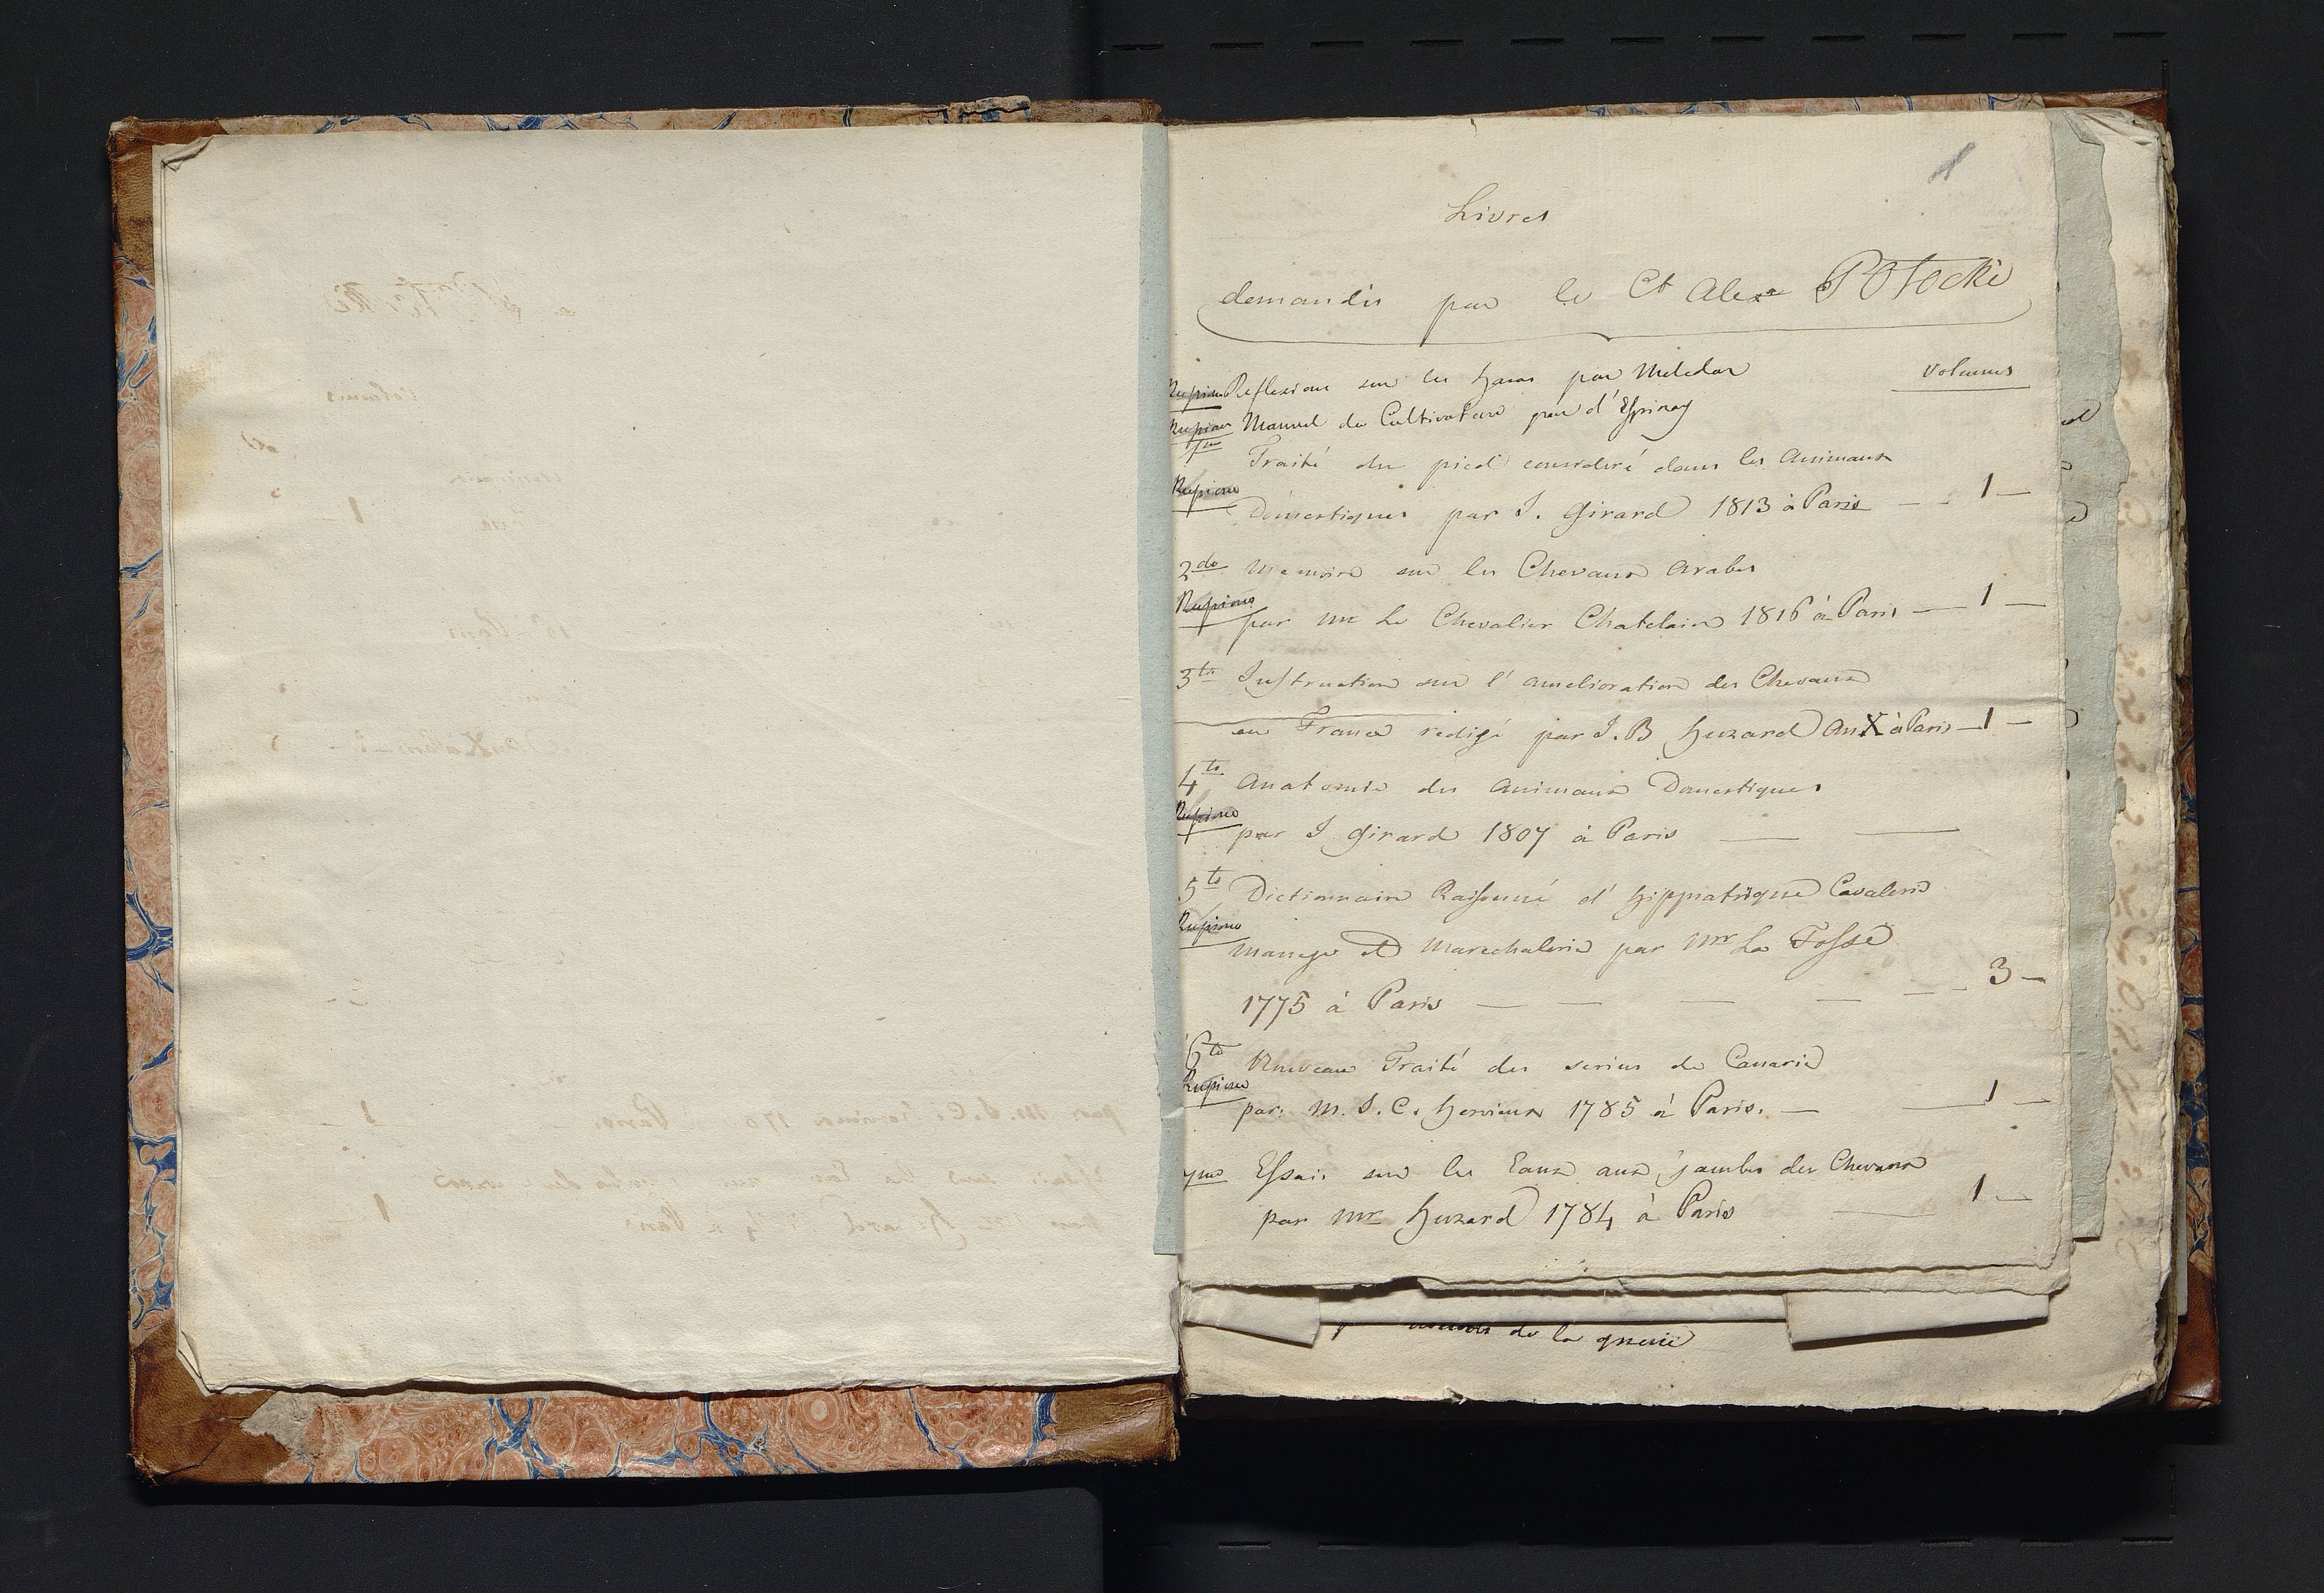 1
Livres
demandés par le Ct Alexre Potocki
Volumes
Reflexions sur les haras par Meledor
Manuel du Cultivateur par d'Espinay
Traité du pied consideré dans les Animaux
Domestiques par J. Girard 1813 à Paris — 1 —
2do Memoire sur les Chevaux Arabes
par mr Le Chevalier Chatelain 1816 à Paris — 1 —
3to Instruction sur l'amelioration des Chevaux
en France redigé par J. B Huzard An X à Paris — 1 —
4to Anatomie des Animaux Domestiques
par J Girard 1807 à Paris — —
5to Dictionnaire Raisonné d'hippiatrique Cavalerie
Manege et Marechalerie par Mr La Fosse
1775 à Paris — — — — — 3 —
6to Nouveau Traité des serins de Canarie
par M. J. C. Hervieux 1785 à Paris. — — 1 —
7mo Essai sur les Eaux aux jambes des Chevaux
par mr Huzard 1784 à Paris — 1 —
de la guerre